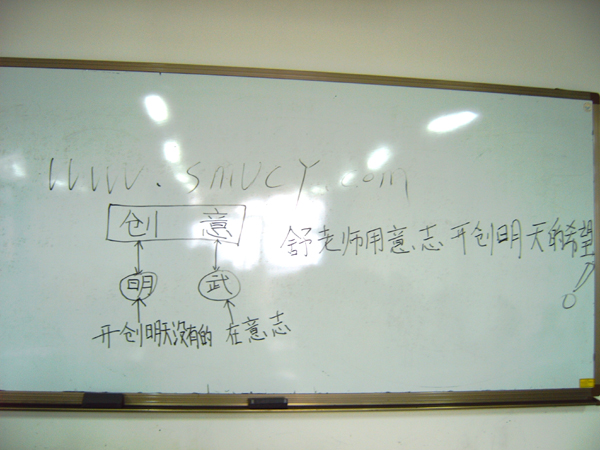 www.smucy.com
创 意
舒老师用意志开创明天的希望
明 武
开创明天没有的 在意志